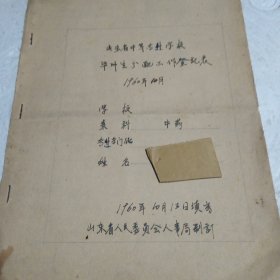 山东省中等专业学校
毕业生分配工作登记表
1960年10月
学校
系科 中药
专业部门
姓名
1960年10月12日填写
山东省人民委员会人事局制订